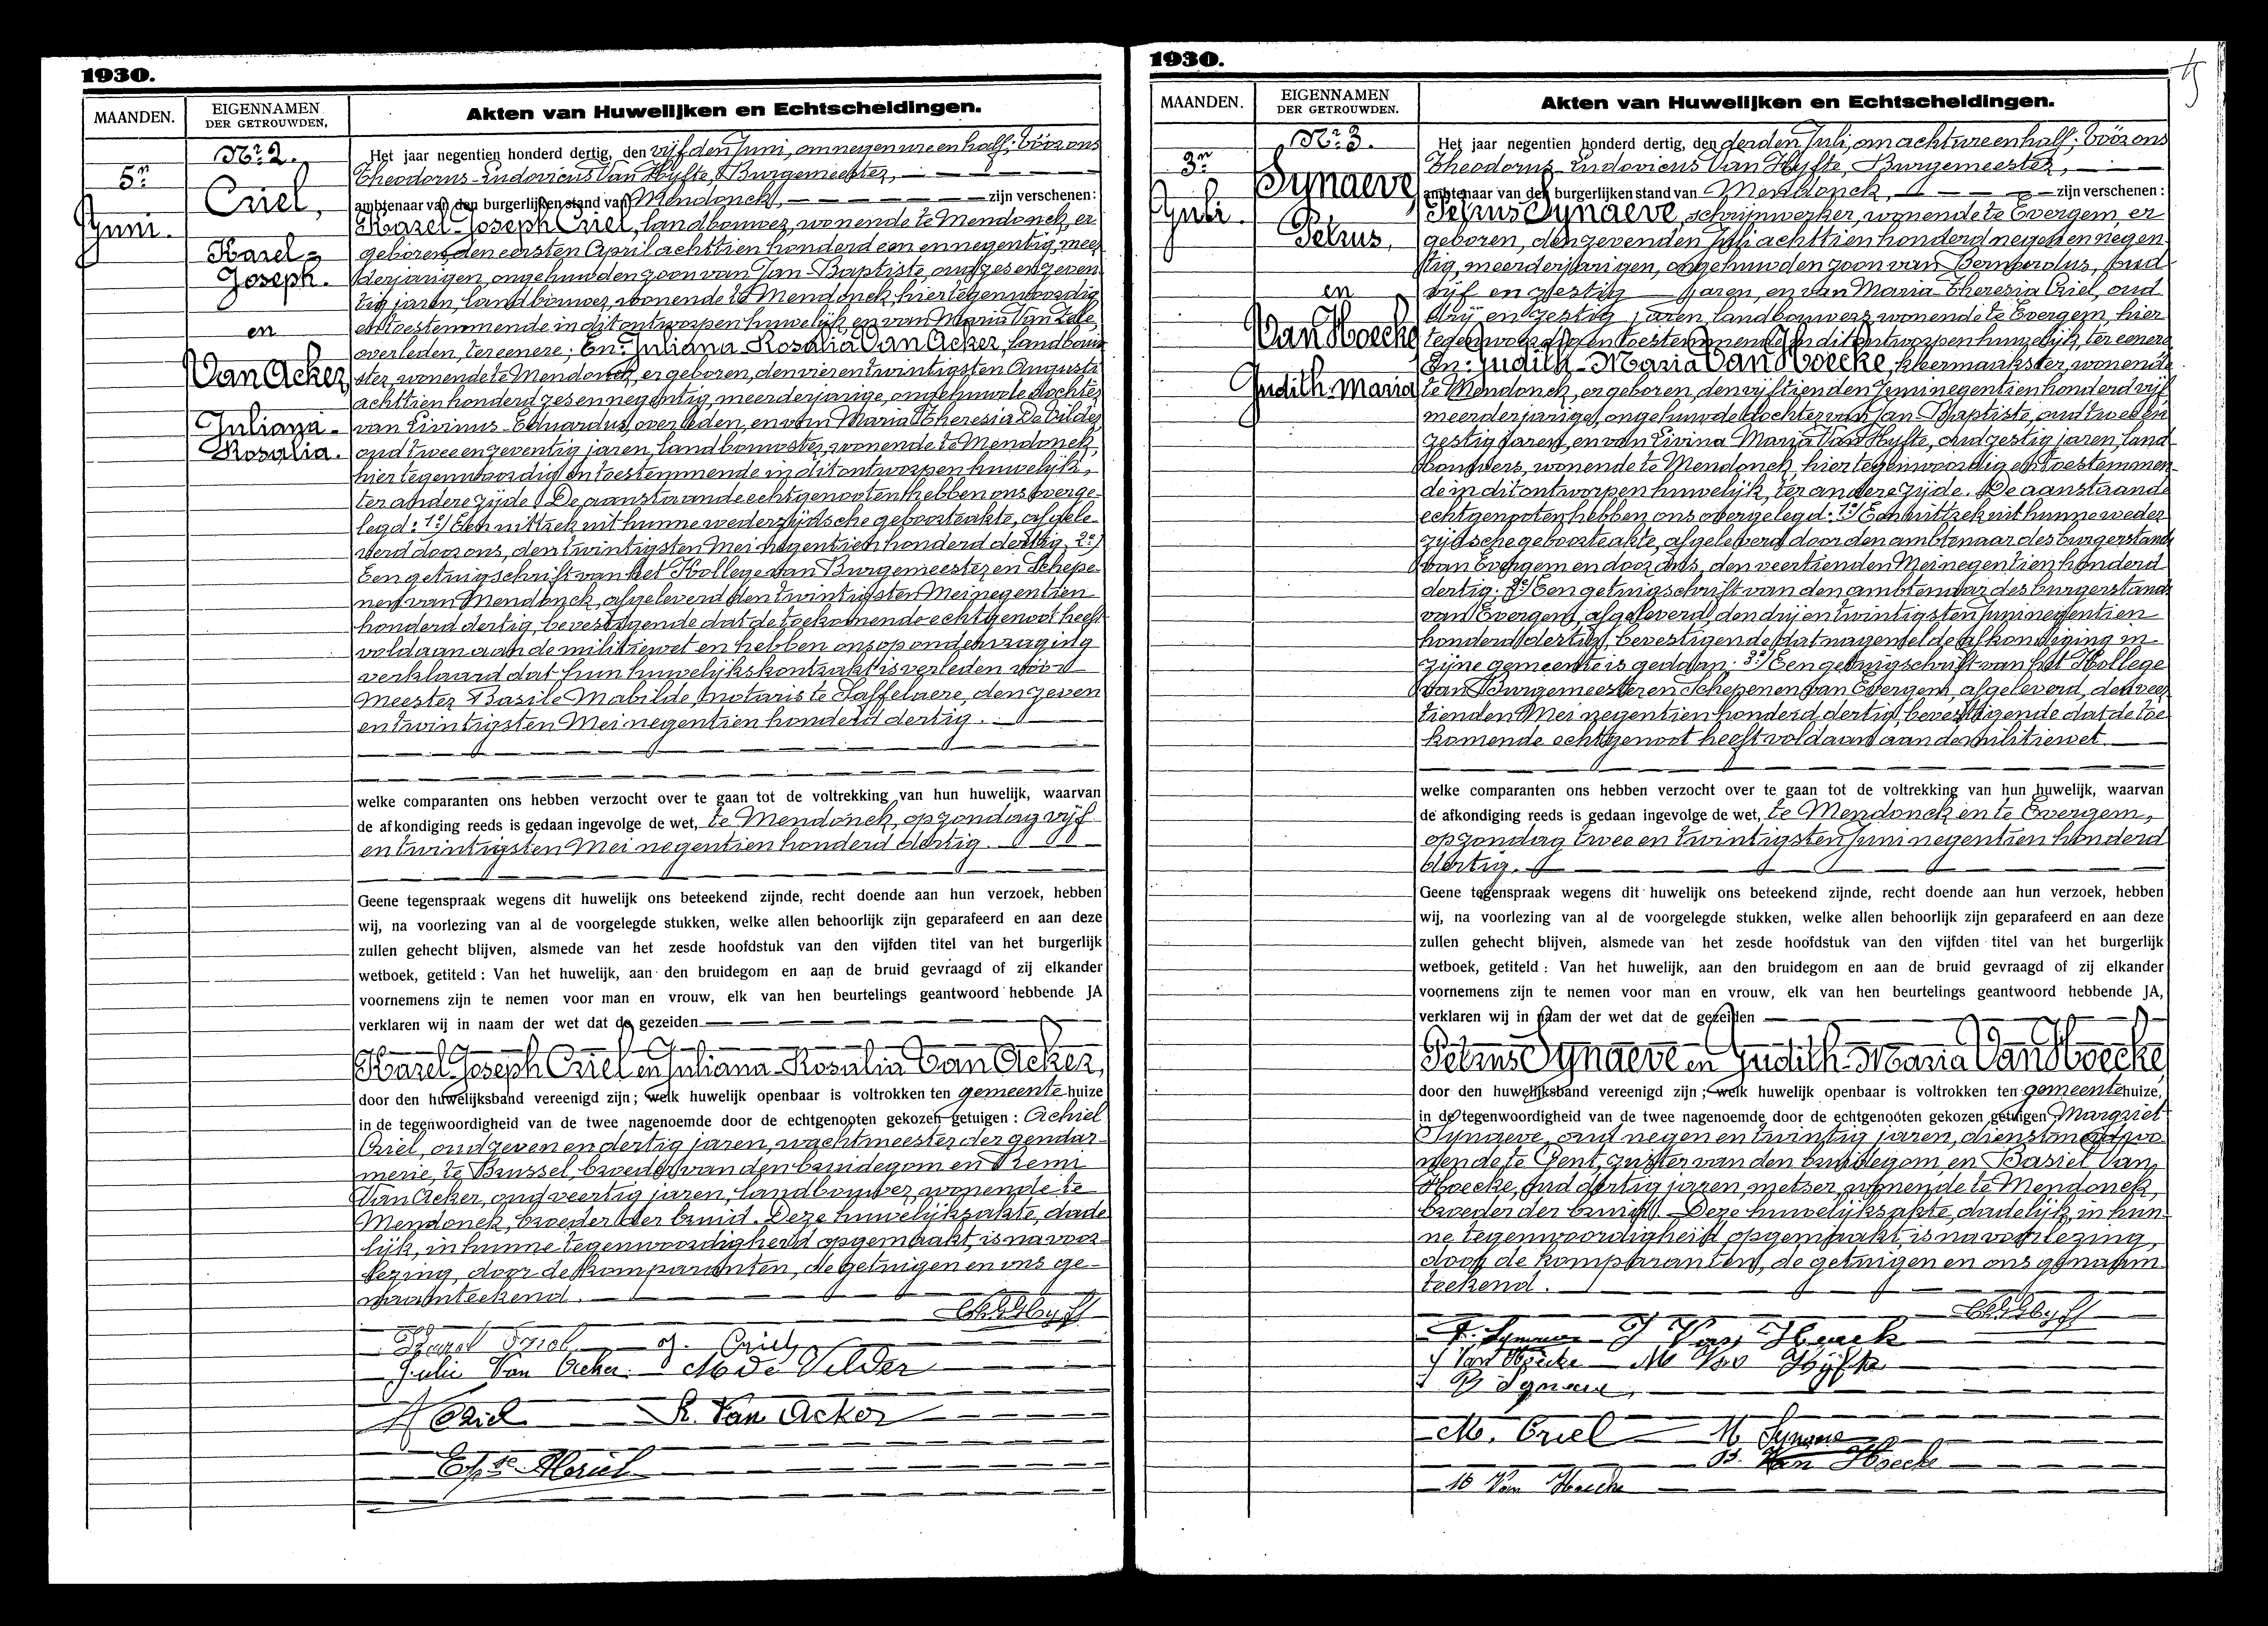 1930.
MAANDEN.
EIGENNAMEN
DER GETROUWDEN.
Akten van Huwelijken en Echtscheidingen.
5n
Juni.
Nr 2.
Criel,
Karel-
Joseph.
en
Van Acker,
Juliana-
Rosalia.
Het jaar negentien honderd dertig, den vijfden Juni, om negen ure en half; vóór ons
Theodorus-Ludovicus Van Hyfte, Burgemeester,
ambtenaar van den burgerlijken stand van Mendonck, zijn verschenen:
Karel-Joseph Criel, landbouwer, wonende te Mendonck, er
geboren, den eersten April achttien honderd een en negentig, meer
derjarigen, ongehuwden zoon van Jan-Baptiste, oud zes en zeven
tig jaren, landbouwer, wonende te Mendonck, hier tegenwoordig
en toestemmende in dit ontworpen huwelijk, en van Maria Van Zele,
overleden, ter eenere; En: Juliana-Rosalia Van Acker, landbouw
ster, wonende te Mendonck, er geboren, den vier en twintigsten Augusti
achttien honderd zes en negentig, meerderjarige, ongehuwde dochter
van Livinus-Eduardus, overleden, en van Maria Theresia De Vilder,
oud twee en zeventig jaren, landbouwster, wonende te Mendonck,
hier tegenwoordig en toestemmende in dit ontworpen huwelijk,
ter andere zijde. De aanstaande echtgenooten hebben ons overge-
legd: 1º/ Een uittrek uit hunne wederzijdsche geboorteakte, afgele-
verd door ons, den twintigsten Mei negentien honderd dertig; 2º/
Een getuigschrift van het Kollege van Burgemeester en Schepe-
nen van Mendonck, afgeleverd den twintigsten Mei negentien
honderd dertig, bevestigende dat de toekomende echtgenoot heeft
voldaan aan de militiewet en hebben ons op ondervraging
verklaard dat hun huwelijkskontrakt is verleden vóór
Meester Basile Mabilde, notaris te Saffelaere, den zeven
en twintigsten Mei negentien honderd dertig.
welke comparanten ons hebben verzocht over te gaan tot de voltrekking van hun huwelijk, waarvan
de afkondiging reeds is gedaan ingevolge de wet, te Mendonck, op zondag vijf
en twintigsten Mei negentien honderd dertig.
Geene tegenspraak wegens dit huwelijk ons beteekend zijnde, recht doende aan hun verzoek, hebben
wij, na voorlezing van al de voorgelegde stukken, welke allen behoorlijk zijn geparafeerd en aan deze
zullen gehecht blijven, alsmede van het zesde hoofdstuk van den vijfden titel van het burgerlijk
wetboek, getiteld : Van het huwelijk, aan den bruidegom en aan de bruid gevraagd of zij elkander
voornemens zijn te nemen voor man en vrouw, elk van hen beurtelings geantwoord hebbende JA
verklaren wij in naam der wet dat de gezeiden
Karel-Joseph Criel en Juliana-Rosalia Van Acker,
door den huwelijksband vereenigd zijn; welk huwelijk openbaar is voltrokken ten gemeentehuize
in de tegenwoordigheid van de twee nagenoemde door de echtgenooten gekozen getuigen : Achiel
Criel, oud zeven en dertig jaren, wachtmeester der gendar-
merie, te Brussel, broeder van den bruidegom en Remi
Van Acker, oud veertig jaren, landbouwer, wonende te
Mendonck, broeder der bruid. Deze huwelijksakte, dade
lijk, in hunne tegenwoordigheid opgemaakt, is na voor-
lezing, door de komparanten, de getuigen en ons ge-
naamteekend.
Karel Criel J. Criel
Julie Van Acker M De Vilder
A Criel R. Van Acker
1930.
MAANDEN.
EIGENNAMEN
DER GETROUWDEN.
Akten van Huwelijken en Echtscheidingen.
3n
Juli.
Nr 3.
Synaeve,
Petrus,
en
Van Hoecke
Judith-Maria
Het jaar negentien honderd dertig, den derden Juli, om acht ure en half; vóór ons
Theodorus-Ludovicus Van Hyfte, Burgemeester,
ambtenaar van den burgerlijken stand van Mendonck, zijn verschenen :
Petrus Synaeve, schrijnwerker, wonende te Evergem, er
geboren, den zevenden Juli achttien honderd negen en negen-
tig, meerderjarigen, ongehuwden zoon van Bernardus, oud
vijf en zestig jaren, en van Maria-Theresia Criel, oud
drij en zestig jaren, landbouwers, wonende te Evergem, hier
tegenwoordig en toestemmende in dit ontworpen huwelijk, ter eenere
En: Judith-Maria Van Hoecke, kleermaakster, wonende
te Mendonck, er geboren, den vijftienden Juni negentien honderd vijf
meerderjarige, ongehuwde dochter van Jan-Baptiste, oud twee en
zestig jaren, en van Livina Maria Van Hyfte, oud zestig jaren, land-
bouwers, wonende te Mendonck, hier tegenwoordig en toestemmen-
de in dit ontworpen huwelijk, ter andere zijde. De aanstaande
echtgenooten hebben ons overgelegd: 1º/ Een uittrek uit hunne weder
zijdsche geboorteakte, afgeleverd door den ambtenaar des burgerstands
van Evergem en door ons, den veertienden Mei negentien honderd
dertig; 2º/ Een getuigschrift van den ambtenaar des burgerstands
van Evergem, afgeleverd, den drij en twintigsten Juni negentien
honderd dertig, bevestigende dat nagemelde afkondiging in
zijne gemeente is gedaan; 3º/ Een getuigschrift van het Kollege
van Burgemeester en Schepenen van Evergem, afgeleverd, den veer
tienden Mei negentien honderd dertig, bevestigende dat de toe
komende echtgenoot heeft voldaan aan de militiewet.
welke comparanten ons hebben verzocht over te gaan tot de voltrekking van hun huwelijk, waarvan
de afkondiging reeds is gedaan ingevolge de wet, te Mendonck en te Evergem,
op zondag twee en twintigsten Juni negentien honderd
dertig.
Geene tegenspraak wegens dit huwelijk ons beteekend zijnde, recht doende aan hun verzoek, hebben
wij, na voorlezing van al de voorgelegde stukken, welke allen behoorlijk zijn geparafeerd en aan deze
zullen gehecht blijven, alsmede van het zesde hoofdstuk van den vijfden titel van het burgerlijk
wetboek, getiteld : Van het huwelijk, aan den bruidegom en aan de bruid gevraagd of zij elkander
voornemens zijn te nemen voor man en vrouw, elk van hen beurtelings geantwoord hebbende JA,
verklaren wij in naam der wet dat de gezeiden
Petrus Synaeve en Judith-Maria Van Hoecke,
door den huwelijksband vereenigd zijn; welk huwelijk openbaar is voltrokken ten gemeentehuize,
in de tegenwoordigheid van de twee nagenoemde door de echtgenooten gekozen getuigen Margriet
Synaeve, oud negen en twintig jaren, dienstmeid, wo
nende te Gent, zuster van den bruidegom, en Basiel Van
Hoecke, oud dertig jaren, metser, wonende te Mendonck,
broeder der bruid. Deze huwelijksakte, dadelijk, in hun-
ne tegenwoordigheid, opgemaakt, is na voorlezing,
door de komparanten, de getuigen en ons genaam-
teekend.
P. Synaeve J Van Hoecke
J Van Hoecke M Van Hyfte
B Synaeve
M. Criel M Synaeve
B. Van Hoecke
Van Hoecke